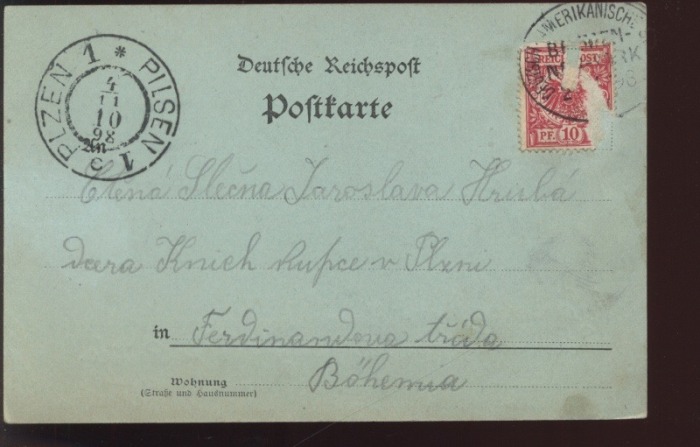 AMERIKANISCHE
PLZEN 1 * PILSEN 1
4
11
10
98
REICHSPOST
PF. 10
Deutsche Reichspost
Postkarte
Ctěná Slečna Jaroslava Hrubá
dcera Knihkupce v Plzni
in Ferdinandova třída
Böhemia
Wohnung
(Straße und Hausnummer)